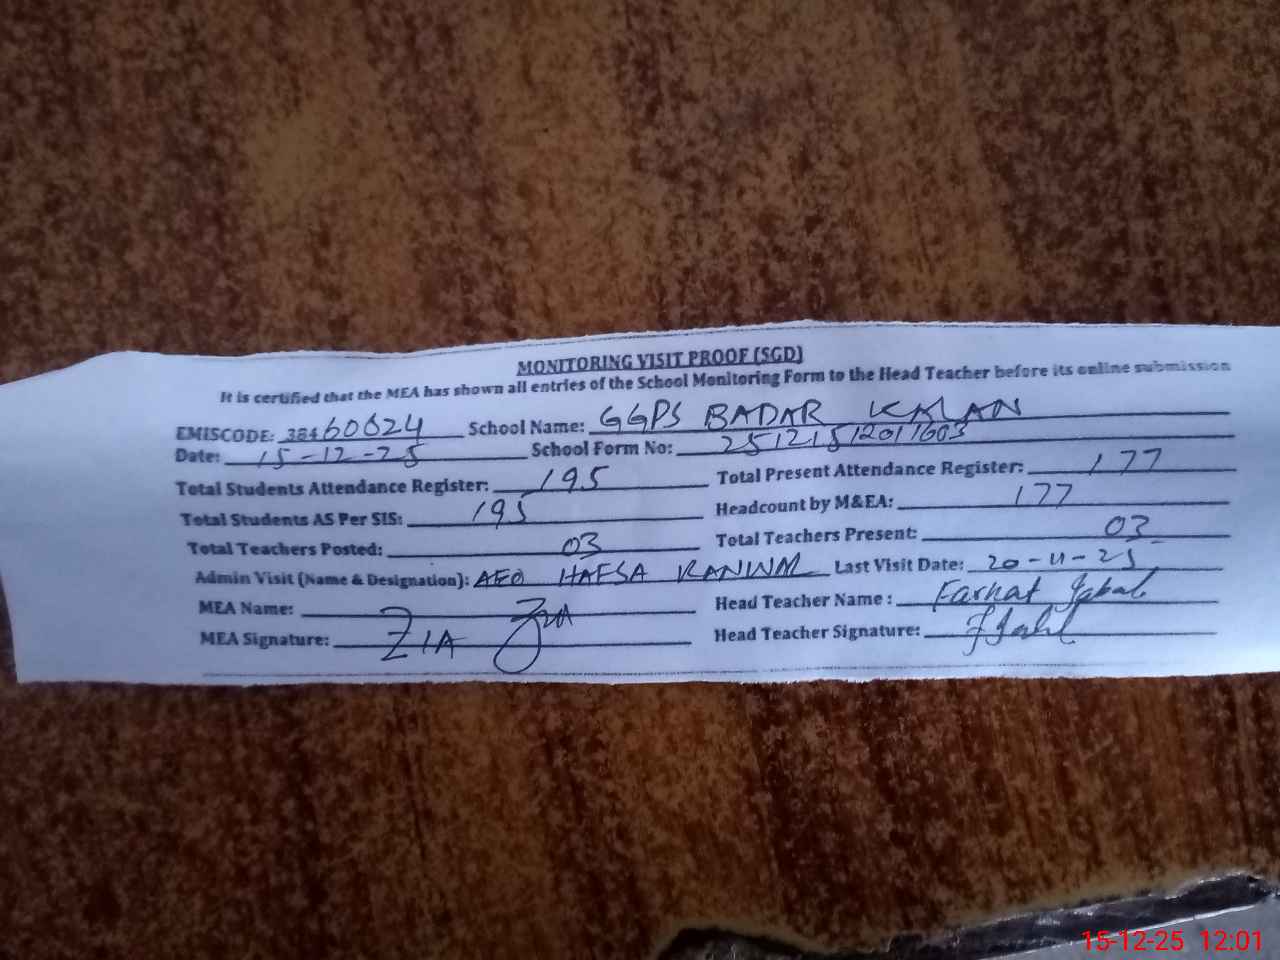 MONITORING VISIT PROOF (SGD)
It is certified that the MEA has shown all entries of the School Monitoring Form to the Head Teacher before its online submission
EMISCODE: 38460624 School Name: GGPS BADAR KALAN
Date: 15-12-25 School Form No: 25121512011603
Total Students Attendance Register: 195 Total Present Attendance Register: 177
Total Students AS Per SIS: 195 Headcount by M&EA: 177
Total Teachers Posted: 03 Total Teachers Present: 03
Admin Visit (Name & Designation): AEO HAFSA KANWAL Last Visit Date: 20-11-25
MEA Name: Head Teacher Name : Farhat Iqbal
MEA Signature: ZIA Head Teacher Signature:
15-12-25 12:01